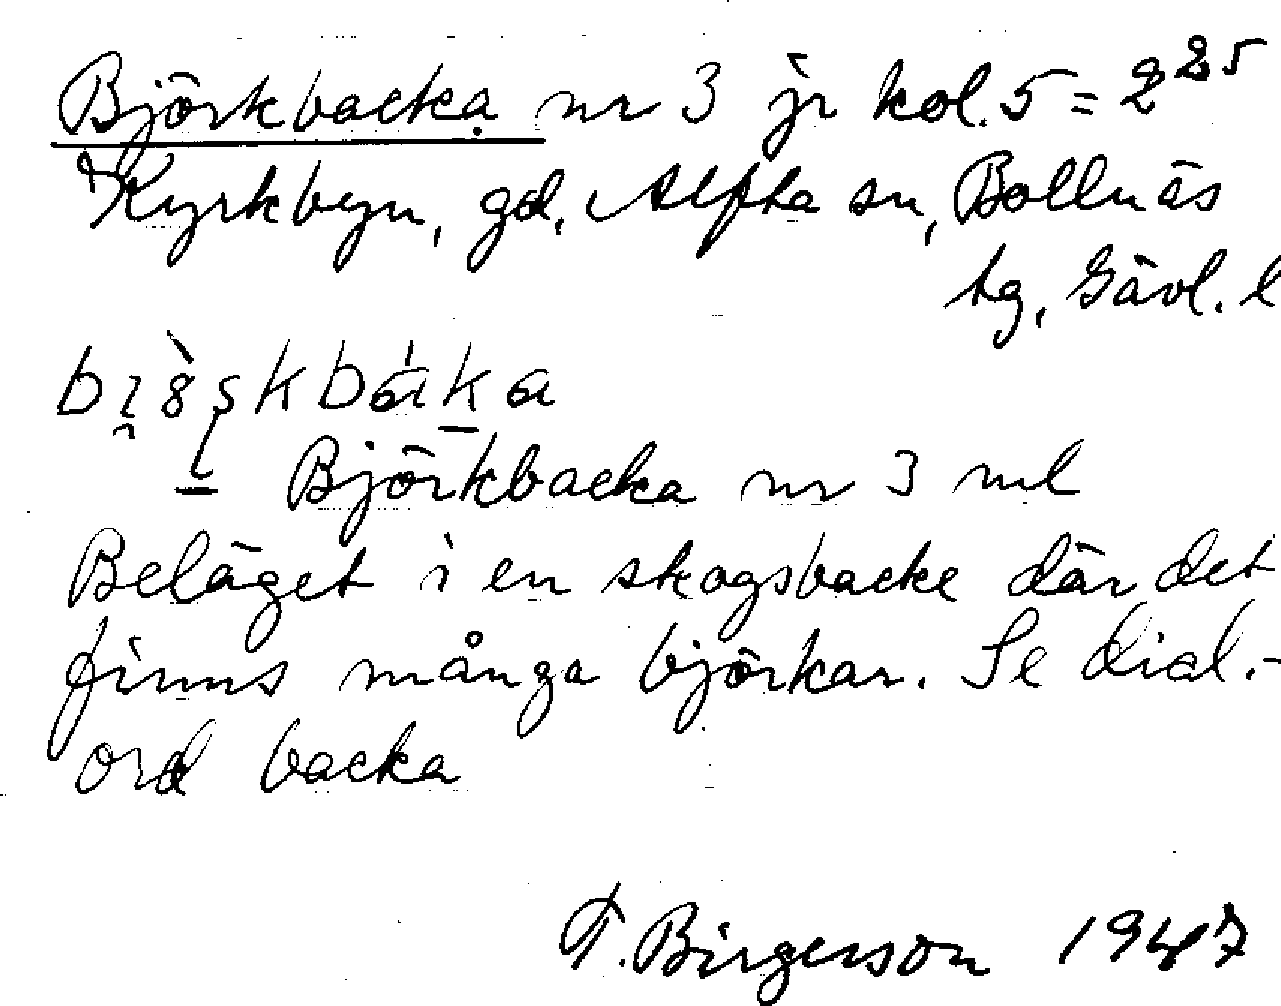 Björkbacka nr 3 jr kol. 5 = 2 25
Kyrkbyn, gd, Alfta sn, Bollnäs
tg, Gävl. l
Björkbacka nr 3 ml
Beläget i en skogsbacke där det
finns många björkar. Se dial.-
ord backa
F. Birgerson 1947